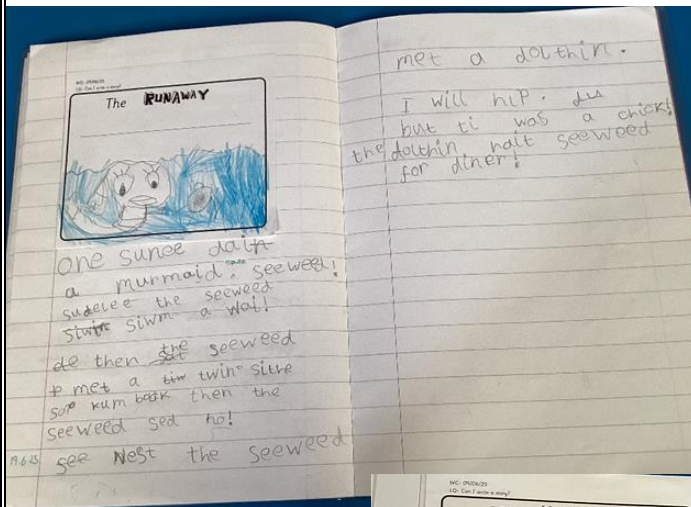 WC: 09/06/25
LQ: Can I write a story?
The RUNAWAY
One sunee dain
a murmaid made seeweed!
sudelee the seeweed
siwm a wai!
de then the seeweed
met a twin sitre
kum back then the
seeweed sed no!
19.6.25 see Nest the seeweed
met a dolthin.
I will hlp.
but ti was a chick!
the dolthin nait seeweed
for diner!
WC: 09/06/25
LQ: Can I write a story?